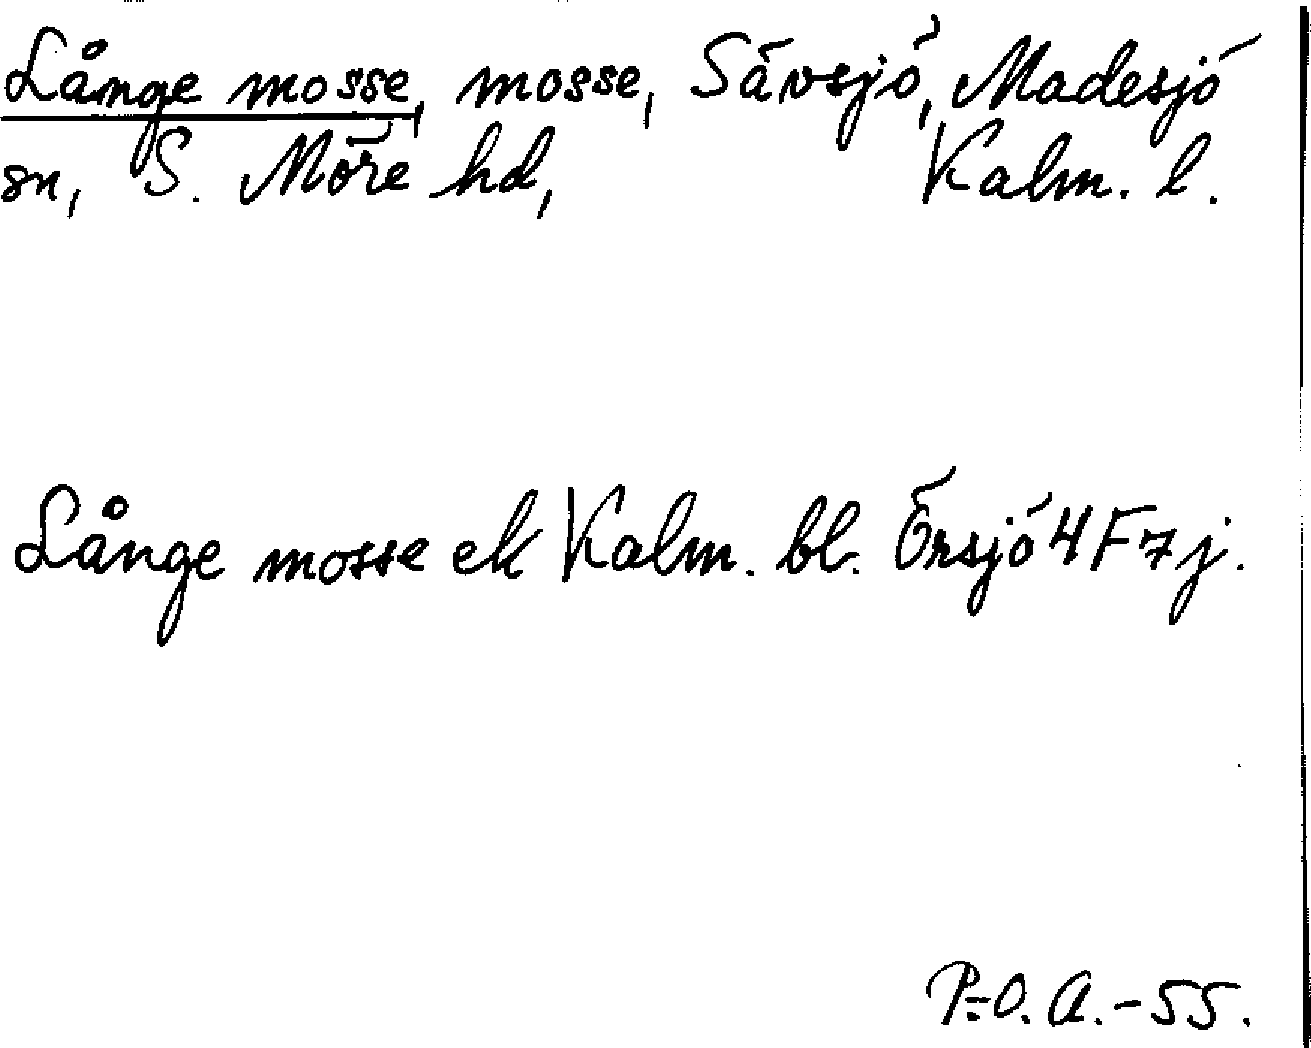 Långe mosse, mosse, Sävsjö, Madesjö
sn, S. Möre hd, Kalm. l.
Långe mosse ek Kalm. bl. Örsjö 4F7j.
P.-O. A.-55.